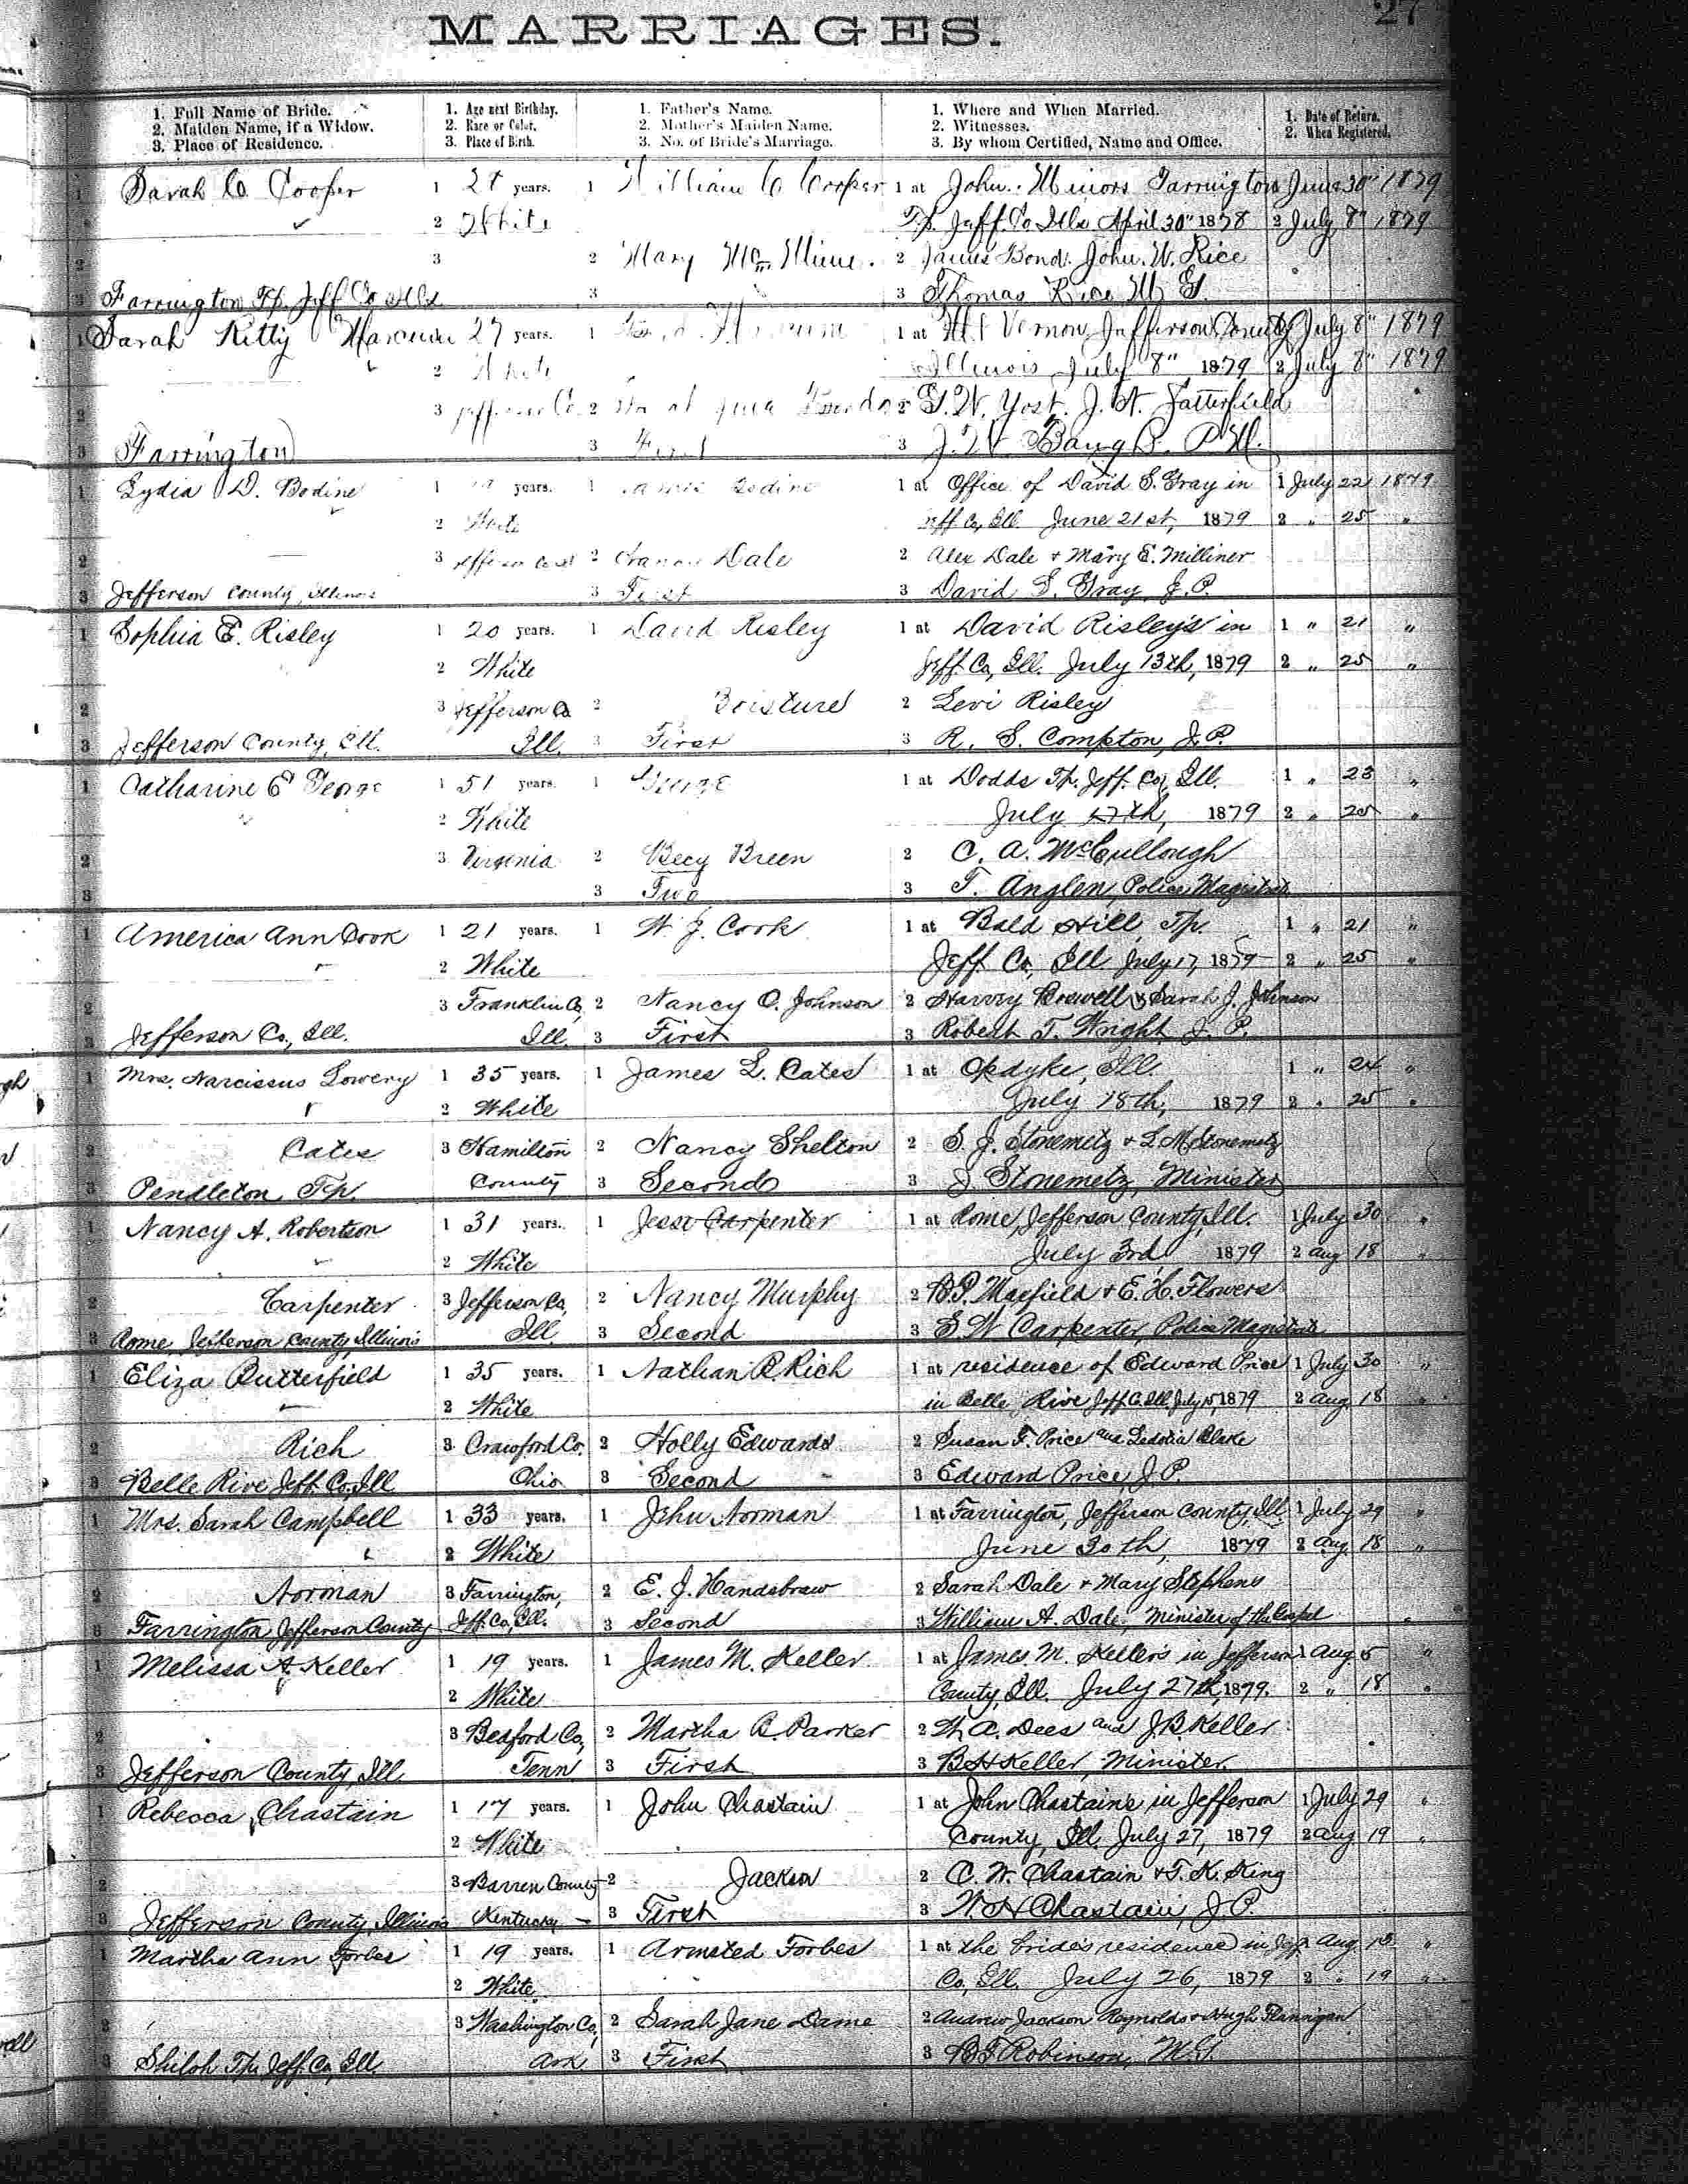 27
MARRIAGES.
1. Full Name of Bride. 2. Maiden Name, if a Widow. 3. Place of Residence.
1. Age next Birthday. 2. Race or Color. 3. Place of Birth.
1. Father's Name. 2. Mother's Maiden Name. 3. No. of Bride's Marriage.
1. Where and When Married. 2. Witnesses. 3. By whom Certified, Name and Office.
1. Date of Return. 2. When Registered.
1 Sarah C Cooper 1 years. 1 William C Cooper 1 at John Minors Farrington June 30" 1879
2 White Tp. Jeff. Co Ills April 30" 1878 2 July 8" 1879
2 3 2 Mary 2 James Bond. John. W. Rice
3 Farrington Tp. Jeff Co Ills 3 3 Thomas Rice M G.
1 Sarah Kitty 27 years. 1 1 at Mt Vernon, Jefferson County July 8" 1879
2 White Illinois July 8" 1879 2 July 8" 1879
2 3 Jefferson Co. 2 2 G. W. Yost. J. N. Satterfield
3 Farrington 3 First 3 J. W Baugh. P. M.
1 Lydia D. Bodine 1 years. 1 Bodine 1 at Office of David S. Gray in 1 July 22 1879
2 White Jeff Co, Ill June 21st, 1879 2 " 25 "
2 3 Jefferson Co 2 Dale 2 Alex Dale + Mary E. Milliner
3 Jefferson County, Illinois 3 First 3 David S. Gray J. P.
1 Sophia E. Risley 1 20 years. 1 David Risley 1 at David Risley's in 1 " 21 "
2 White Jeff. Co, Ill. July 13th, 1879 2 " 25 "
2 3 Jefferson Co 2 Boisture 2 Levi Risley
3 Jefferson County, Ill. Ill. 3 First 3 R. S. Compton, J. P.
1 Catharine E George 1 51 years. 1 George 1 at Dodds Tp. Jeff. Co, Ill. 1 " 23 "
2 White July 17th, 1879 2 " 25 "
2 3 Virginia 2 Becy Breen 2 C. A. McCullough
3 3 Two 3 T. Anglen, Police Magistrate
1 America Ann Cook 1 21 years. 1 W. J. Cook 1 at Bald Hill Tp. 1 " 21 "
2 White Jeff Co, Ill July 17, 1879 2 " 25 "
2 3 Franklin Co, 2 Nancy O. Johnson 2 Harvey & Sarah J. Johnson
3 Jefferson Co, Ill. Ill. 3 First 3 Robert T. Wright J. P.
1 Mrs. Narcissus Lowery 1 35 years. 1 James L. Cates 1 at Opdyke, Ill. 1 " 24 "
2 White July 18th, 1879 2 " 25 "
2 Cates 3 Hamilton 2 Nancy Shelton 2 S. J. Stonemetz + L. M. Stonemetz
3 Pendleton Tp. County 3 Second 3 J Stonemetz, Minister
1 Nancy A. Robertson 1 31 years. 1 Jesse Carpenter 1 at Rome, Jefferson County, Ill. 1 July 30 "
2 White July 3rd 1879 2 Aug 18 "
2 Carpenter 3 Jefferson Co, 2 Nancy Murphy 2 B. P. Maxfield + E. H. Flowers
3 Rome, Jefferson County, Illinois Ill 3 Second 3 S. W Carpenter, Police Magistrate
1 Eliza Butterfield 1 35 years. 1 Nathan R. Rich 1 at residence of Edward Price 1 July 30 "
2 White in Belle Rive Jeff. Co. Ill July 15, 1879 2 Aug 18 "
2 Rich 3 Crawford Co. 2 Holly Edwards 2 Susan F. Price and Ledotia Blake
3 Belle Rive Jeff. Co, Ill Ohio 3 Second 3 Edward Price J. P.
1 Mrs. Sarah Campbell 1 33 years. 1 John Norman 1 at Farrington, Jefferson County, Ill. 1 July 29 "
2 White June 30th, 1879 2 Aug 18 "
2 Norman 3 Farrington, 2 E. J. Handsbraw 2 Sarah Dale + Mary Stephens
3 Farrington Jefferson County Jeff. Co, Ill. 3 Second 3 William A. Dale, Minister of the Gospel
1 Melissa A. Keller 1 19 years. 1 James M. Keller 1 at James M. Keller's in Jefferson 1 Aug 5 "
2 White County, Ill. July 27th, 1879. 2 " 18 "
2 3 Bedford Co, 2 Martha B. Parker 2 A. Dees and J. B. Keller
3 Jefferson County, Ill Tenn 3 First 3 B H Keller, Minister.
1 Rebecca Chastain 1 17 years. 1 John Chastain 1 at John Chastain's in Jefferson 1 July 29 "
2 White County, Ill. July 27, 1879 2 Aug 19 "
2 3 Barren County 2 Jackson 2 C. W. Chastain + T. K. King
3 Jefferson County, Illinois Kentucky 3 First 3 W. H Chastain, J P.
1 Martha Ann Forbes 1 19 years. 1 Armsted Forbes 1 at the bride's residence in Jeff. Aug "
2 White Co, Ill. July 26, 1879 2 " 19 "
2 3 Washington Co, 2 Sarah Jane Dame 2 Andrew Jackson Reynolds + Hugh Flannigan
3 Shiloh Tp. Jeff. Co, Ill. Ark 3 First 3 B F Robinson, M. G.